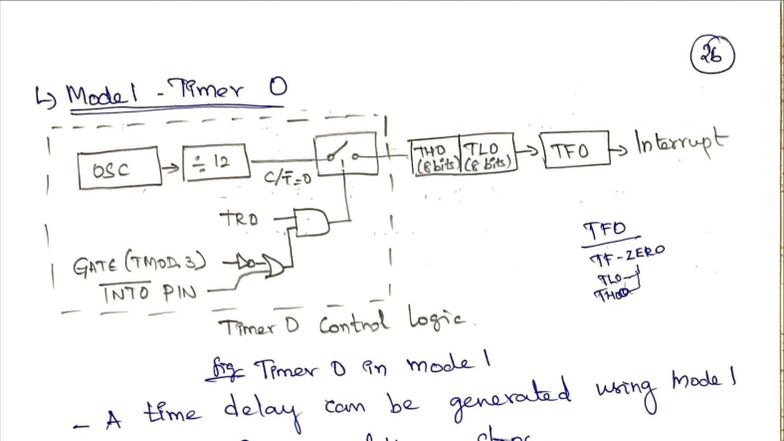 26
↳ Mode 1 - Timer 0
OSC
÷ 12
C/T̅=0
TH0 (8 bits)
TL0 (8 bits)
TF0
Interrupt
TR0
GATE (TMOD.3)
I̅N̅T̅0̅ PIN
TF0
TF-ZERO
TL0
TH0
Timer 0 Control logic.
fig Timer 0 in mode 1
- A time delay can be generated using Mode 1